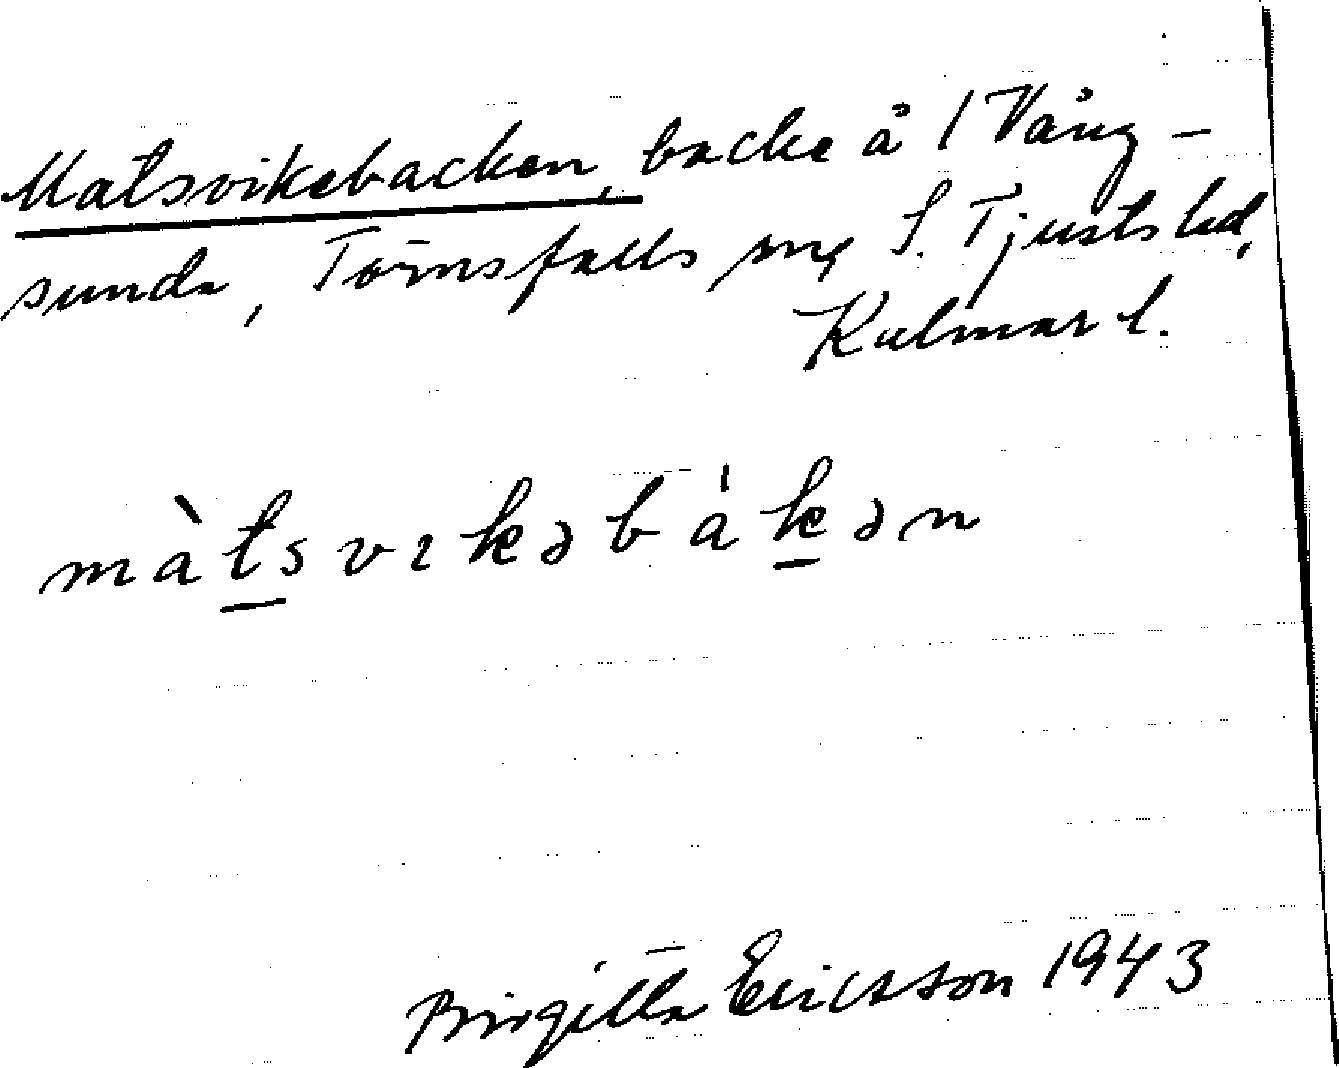 Matsvikebacken, backe å 1 Vång-
sunda, Törnsfalls sn, S. Tjusts hd,
Kalmar l.
màtsvıkəbákən
Birgitta Ericsson 1943